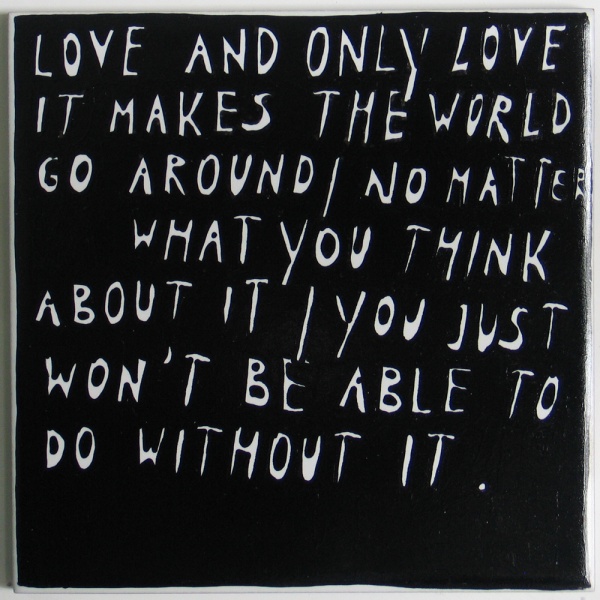 LOVE AND ONLY LOVE
IT MAKES THE WORLD
GO AROUND/ NO MATTER
WHAT YOU THINK
ABOUT IT / YOU JUST
WON'T BE ABLE TO
DO WITHOUT IT.